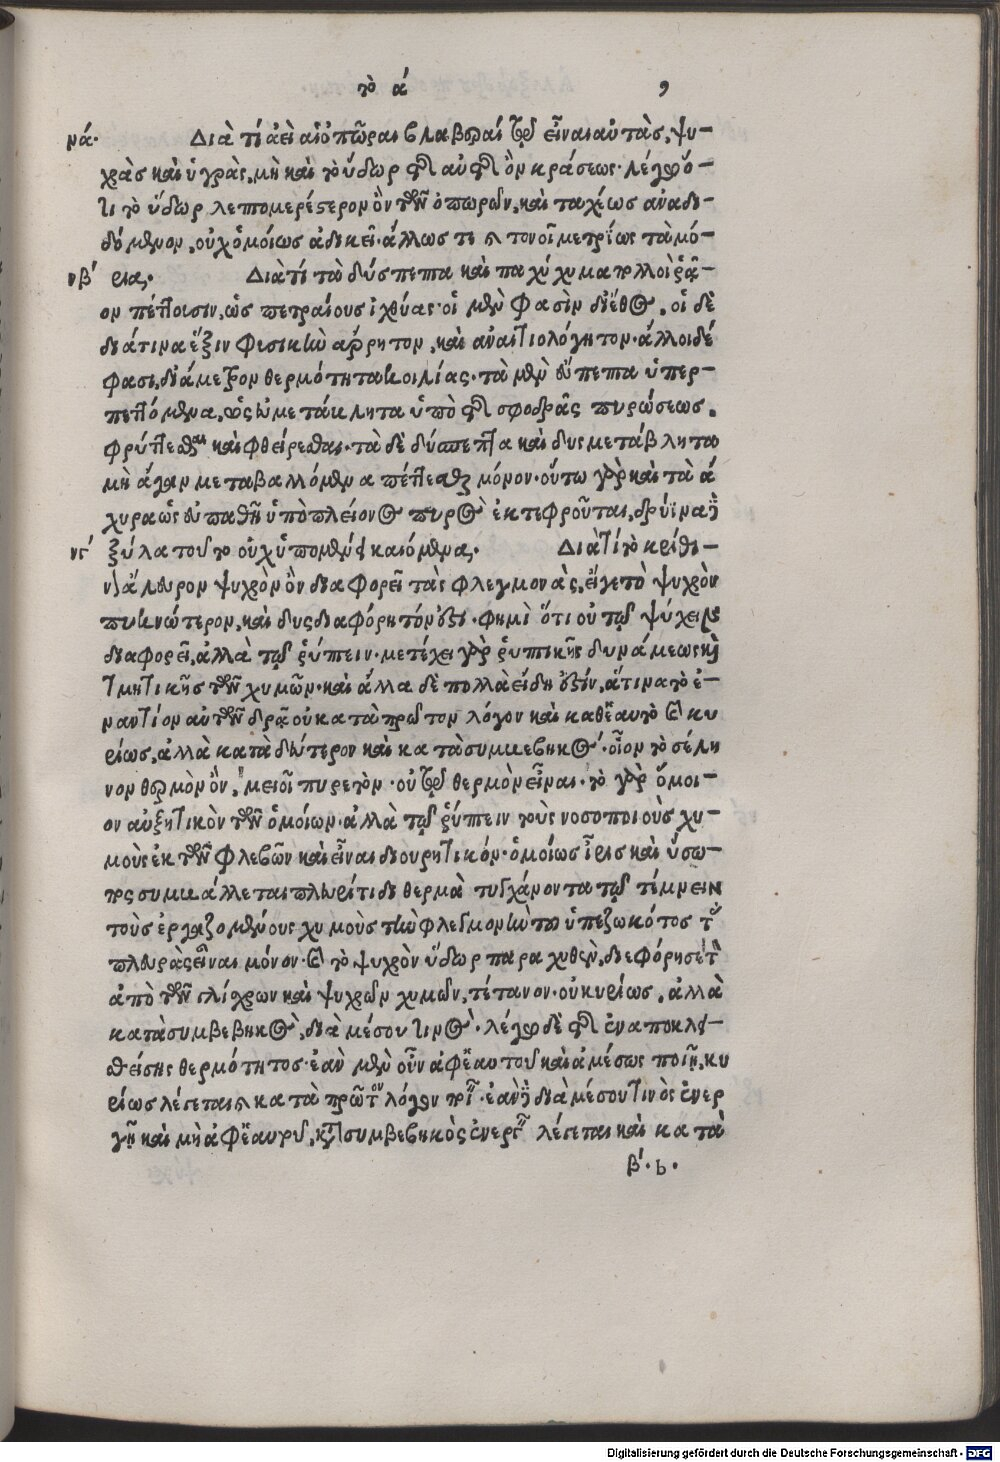 τὸ ά 9
νά. Διὰ τί ἀεὶ αἱ ὀπῶραι βλαβεραί διὰ τὸ εἶναι αὐτὰς, ψυ-
χρὰς καὶ ὑγρὰς, μὴ καὶ τὸ ὕδωρ τῆς αὐτῆς ὂν κράσεως. λέγω ὅ-
τι τὸ ὕδωρ λεπτομερέστερον ὂν τῶν ὀπωρῶν, καὶ ταχέως ἀναδι-
δόμενον, οὐχ ὁμοίως ἀδικεῖ. ἄλλως τε καὶ τονοῖ μετρίως τὰ μό-
νβ′ ρια. Διὰ τί τὰ δύσπεπτα καὶ παχύχυμα πολλοὶ ῥᾷ-
ον πέττουσιν, ὡς πετραίους ἰχθύας. οἱ μὲν φασὶν διέθος. οἱ δὲ
διά τινα ἕξιν φυσικὴν ἄρρητον, καὶ ἀναιτιολόγητον. ἄλλοι δέ
φασι, διά μείζον θερμότητα κοιλίας. τὰ μὲν εὔπεπτα ὑπερ-
πεττόμενα, ὡς εὐμετάκλητα ὑπὸ τῆς σφοδρᾶς πυρώσεως.
φρύττεσθαι καὶ φθείρεσθαι. τὰ δὲ δύσπεπτα καὶ δυσμετάβλητα
μὴ ἄγαν μεταβαλλόμενα πέττεσθαι μόνον. οὕτω γὰρ καὶ τὰ ἄ
χυρα ὡς εὐπαθῆ ὑπὸ πλείονος πυρὸς ἐκτεφροῦται, δρύϊνα δὲ
νγ′ ξύλα τοῦτο οὐχ ὑπομένει καιόμενα. Διὰ τί τὸ κρίθι-
νον ἄλευρον ψυχρὸν ὂν διαφορεῖ τὰς φλεγμονὰς, εἴγε τὸ ψυχρὸν
πυκνώτερον, καὶ δυσδιαφόρητόν ἐστι. φημὶ ὅτι οὐ τῷ ψύχειν
διαφορεῖ, ἀλλὰ τῷ ῥύπτειν. μετέχει γὰρ ῥυπτικῆς δυνάμεως καὶ
τμητικῆς τῶν χυμῶν. καὶ ἄλλα δὲ πολλὰ εἴδη ἐστίν, ἅτινα τὸ ἐ-
ναντίον αὐτῶν δρᾷ οὐ κατὰ πρῶτον λόγον καὶ καθ᾽ ἑαυτὸ καὶ κυ
ρίως, ἀλλὰ κατὰ δεύτερον καὶ κατὰ συμβεβηκός. οἷον τὸ σέλι
νον θερμὸν ὂν, μειοῖ πυρετὸν. οὐ διὰ τὸ θερμὸν εἶναι. τὸ γὰρ ὅμοι-
ον αὐξητικὸν τῶν ὁμοίων. ἀλλὰ τῷ ῥύπτειν τοὺς νοσοποιοὺς χυ-
μοὺς ἐκ τῶν φλεβῶν καὶ εἶναι διουρητικόν. ὁμοίως ἶρις καὶ ὕσσω-
πος συμβάλλεται πλευρίτιδι θερμὰ τυγχάνοντα τῷ τέμνειν
τοὺς ἐργαζομένους χυμοὺς τὴν φλεγμονὴν τοῦ ὑπεζωκότος τὰς
πλευρὰς εἶναι μόνον. καὶ τὸ ψυχρὸν ὕδωρ παραχυθὲν, διεφόρησε τὸν
ἀπὸ τῶν γλίσχρων καὶ ψυχρῶν χυμῶν, τέτανον. οὐ κυρίως, ἀλλὰ
κατὰ συμβεβηκὸς, διὰ μέσου τινὸς. λέγω δὲ τῆς ἐναποκλει-
σθείσης θερμότητος. ἐὰν μὲν οὖν ἀφ᾽ ἑαυτοῦ καὶ ἀμέσως ποιῇ, κυ
ρίως λέγεται καὶ κατὰ πρῶτον λόγον ποιεῖν. ἐὰν δὲ διὰ μέσου τινὸς ἐνερ
γῇ καὶ μὴ ἀφ᾽ ἑαυτοῦ, κατὰ συμβεβηκὸς ἐνεργεῖν λέγεται καὶ κατὰ
β′. b.
Digitalisierung gefördert durch die Deutsche Forschungsgemeinschaft - DFG